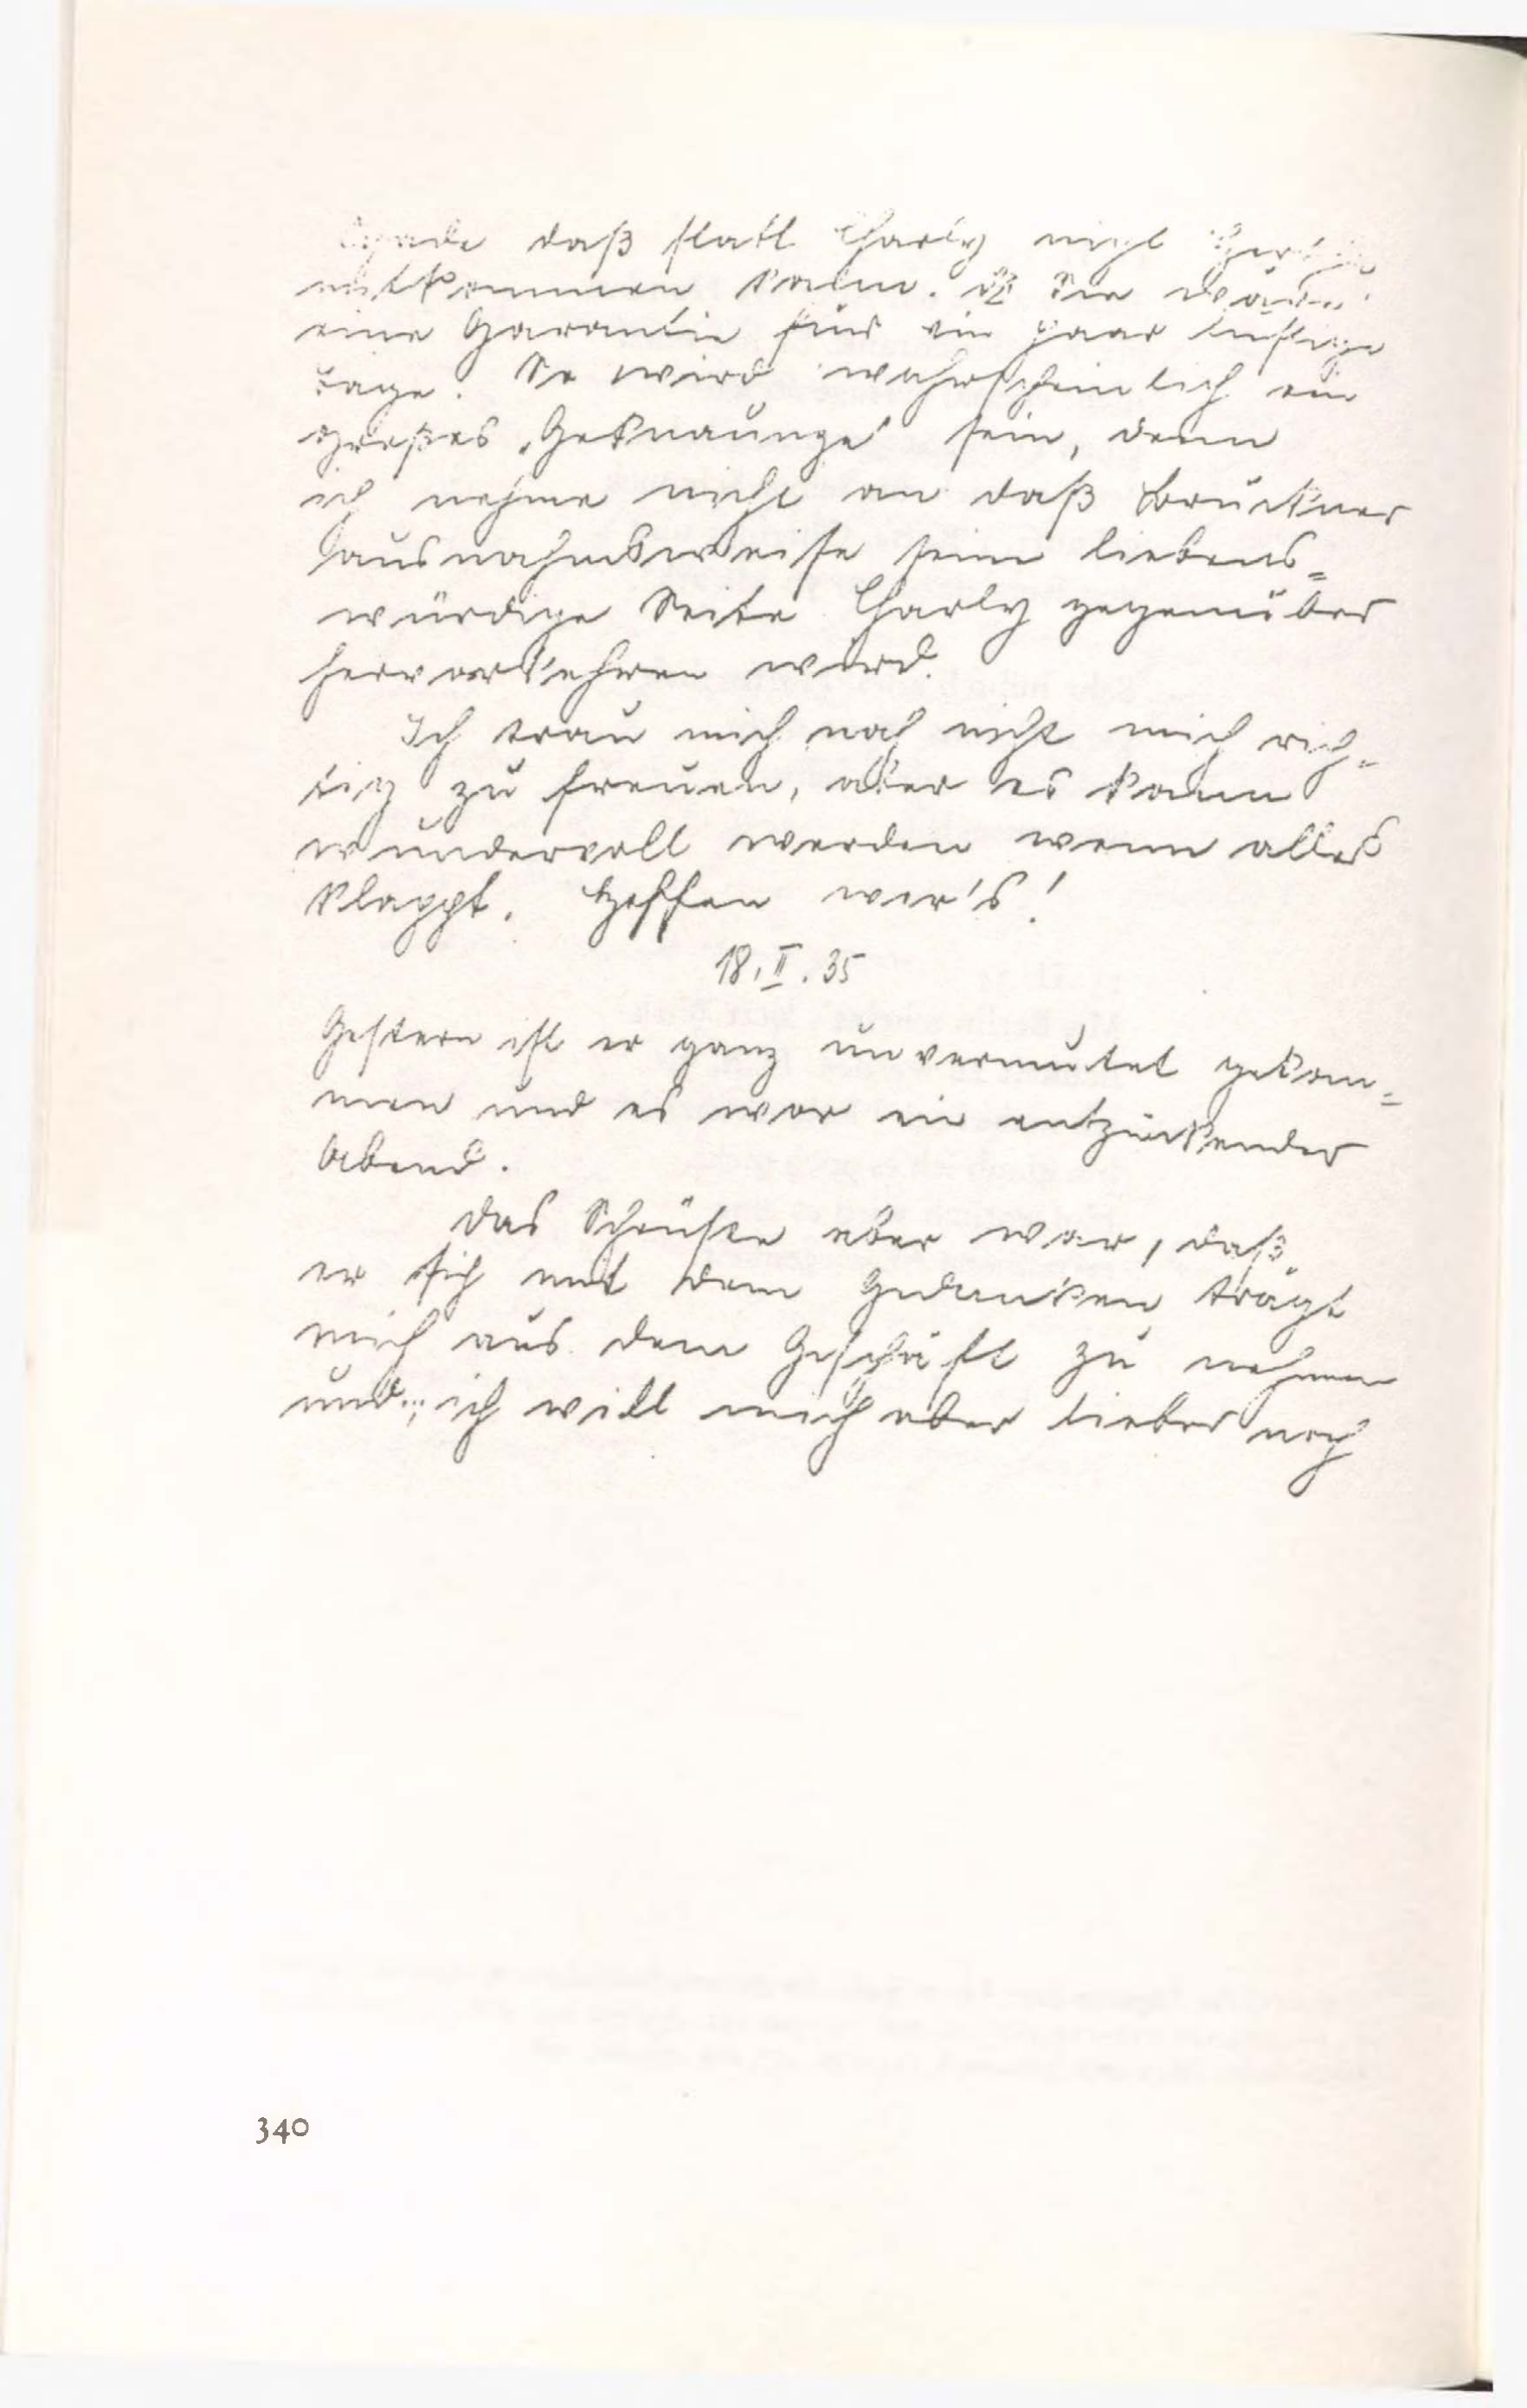 Schade daß statt Charly nicht Herta
mitkommen kann. Sie wäre
eine Garantie für ein paar lustige
Tage. So wird wahrscheinlich ein
großes „Geknaunze“ sein, denn
ich nehme nicht an daß Brückner
ausnahmsweise seine liebens=
würdige Seite Charly gegenüber
hervorkehren wird.
Ich trau mich noch nicht mich rich=
tig zu freuen, aber es kann
wundervoll werden wenn alles
klappt. Hoffen wir's!
18.II.35
Gestern ist er ganz unvermutet gekom=
men und es war ein entzückender
Abend.
Das Schönste aber war, daß
er sich mit dem Gedanken trägt
mich aus dem Geschäft zu nehmen
und.., ich will mich aber lieber noch
340